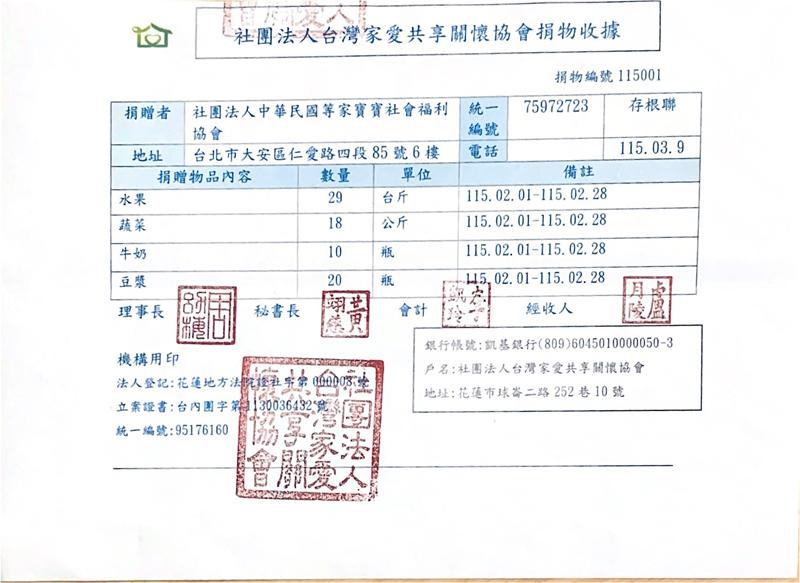 社團法人台灣家愛共享關懷協會捐物收據
捐物編號 115001
捐贈者 社團法人中華民國等家寶寶社會福利協會 統一編號 75972723 存根聯
地址 台北市大安區仁愛路四段 85 號 6 樓 電話 115.03.9
捐贈物品內容 數量 單位 備註
水果 29 台斤 115.02.01-115.02.28
蔬菜 18 公斤 115.02.01-115.02.28
牛奶 10 瓶 115.02.01-115.02.28
豆漿 20 瓶 115.02.01-115.02.28
理事長 秘書長 會計 經收人
銀行帳號:凱基銀行(809)6045010000050-3
戶名:社團法人台灣家愛共享關懷協會
地址:花蓮市球崙二路 252 巷 10 號
機構用印
法人登記:花蓮地方法院證社字第 000008 號
立案證書:台內團字第 1130036432 號
統一編號:95176160
社團法人台灣家愛共享關懷協會